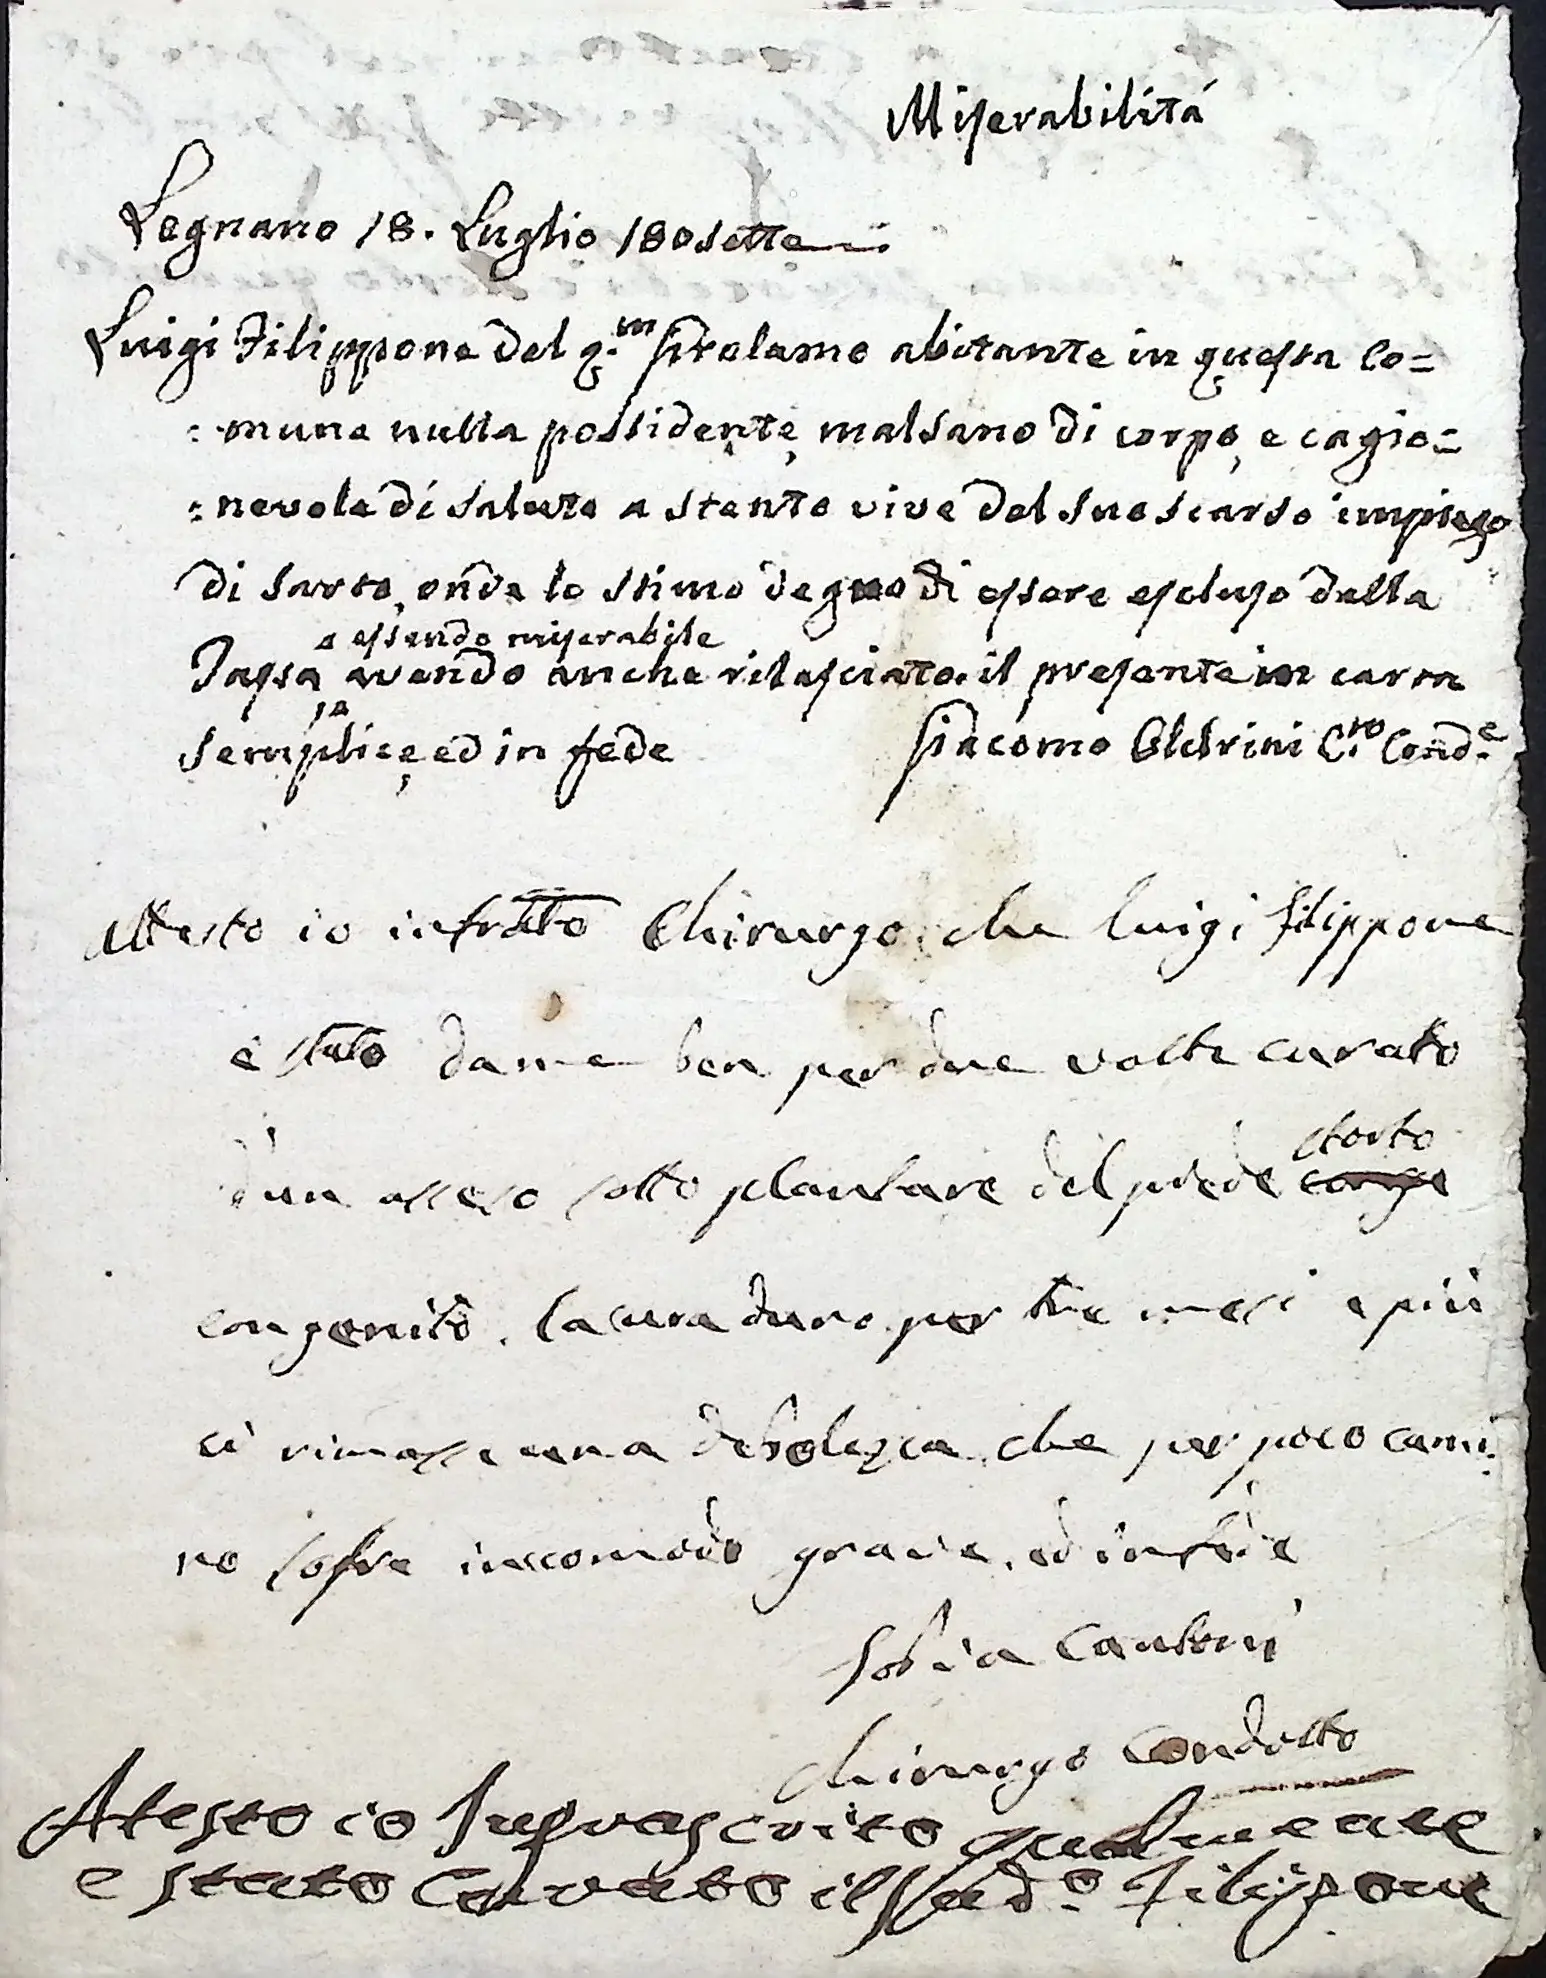 Miserabilitá
Legnano 18. Luglio 180sette
Luigi Filippone del q.m Girolamo abitante in questa Co=
:mune nulla possidente, malsano di corpo, e cagio=
:nevole di salute a stento vive del suo scarso impiego
di sarto, onde lo stimo degno di essere escluso dalla
e essendo miserabile
Tassa avendo anche rilasciato il presente in carta
semplice, ed in fede Giacomo Oldrini C.ro Cond.e
Attesto io infratto Chirurgo che Luigi Filippone
è stato da me ben per due volte curato
d'un assesso sotto plantare del piede storto
congenito. la cura duro per tre mesi e più
ci rimasse una debolezza, che per poco cami:
no sofre incomodo grave, ed in fede
Cantoni
Chirurgo Condotto
Atesto io
e stato Curato il Sud.o Filipone